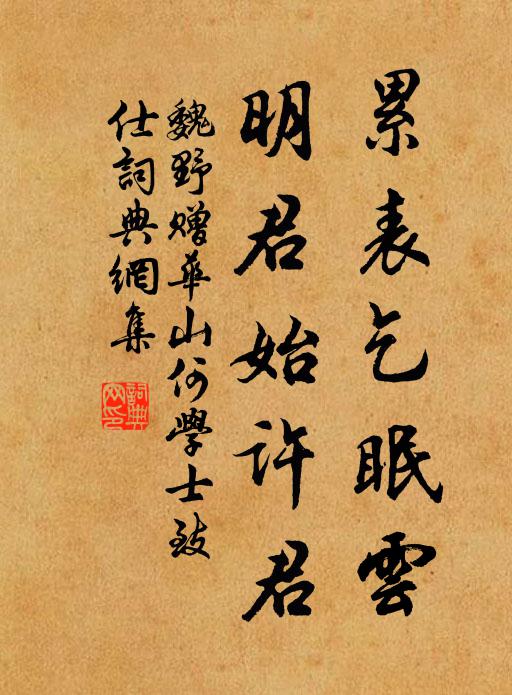 累表乞眠雲
明君始許君
魏野贈華山何學士致
仕詞典網集
詞典
网印